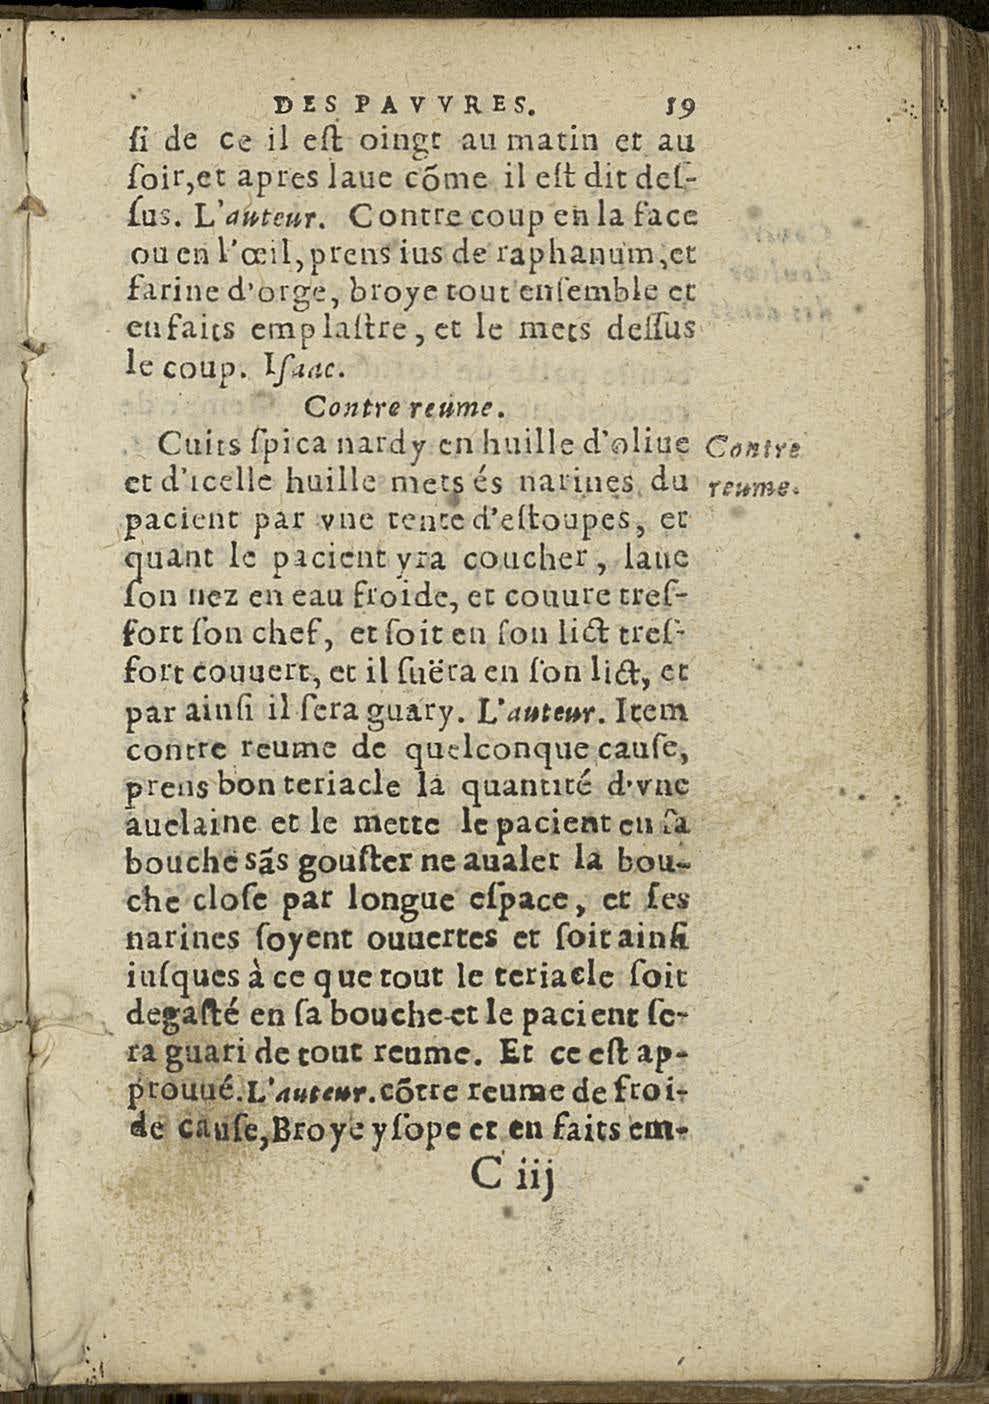 DES PAVVRES. 19
ſi de ce il eſt oingt au matin et au
ſoir, et apres laue cõme il eſt dit deſ-
ſus. L'auteur. Contre coup en la face
ou en l'œil, prens ius de raphanum, et
farine d'orge, broye tout enſemble et
en faits emplaſtre, et le mets deſſus
le coup. Iſaac.
Contre reume.
Cuits ſpica nardy en huille d'oliue
Contre
et d'icelle huille mets és narines du
reume.
pacient par vne tente d'eſtoupes, et
quant le pacient yra coucher, laue
ſon nez en eau froide, et couure treſ-
fort ſon chef, et ſoit en ſon lict treſ-
fort couuert, et il ſuëra en ſon lict, et
par ainſi il ſera guary. L'auteur. Item
contre reume de quelconque cauſe,
prens bon teriacle la quantité d'vne
auelaine et le mette le pacient en ſa
bouche sãs gouſter ne aualer la bou-
che cloſe par longue eſpace, et ſes
narines ſoyent ouuertes et ſoit ainſi
iuſques à ce que tout le teriacle ſoit
degaſté en ſa bouche et le pacient ſe-
ra guari de tout reume. Et ce eſt ap-
prouué. L'auteur. cõtre reume de froi-
de cauſe, Broye yſope et en faits em-
C iij